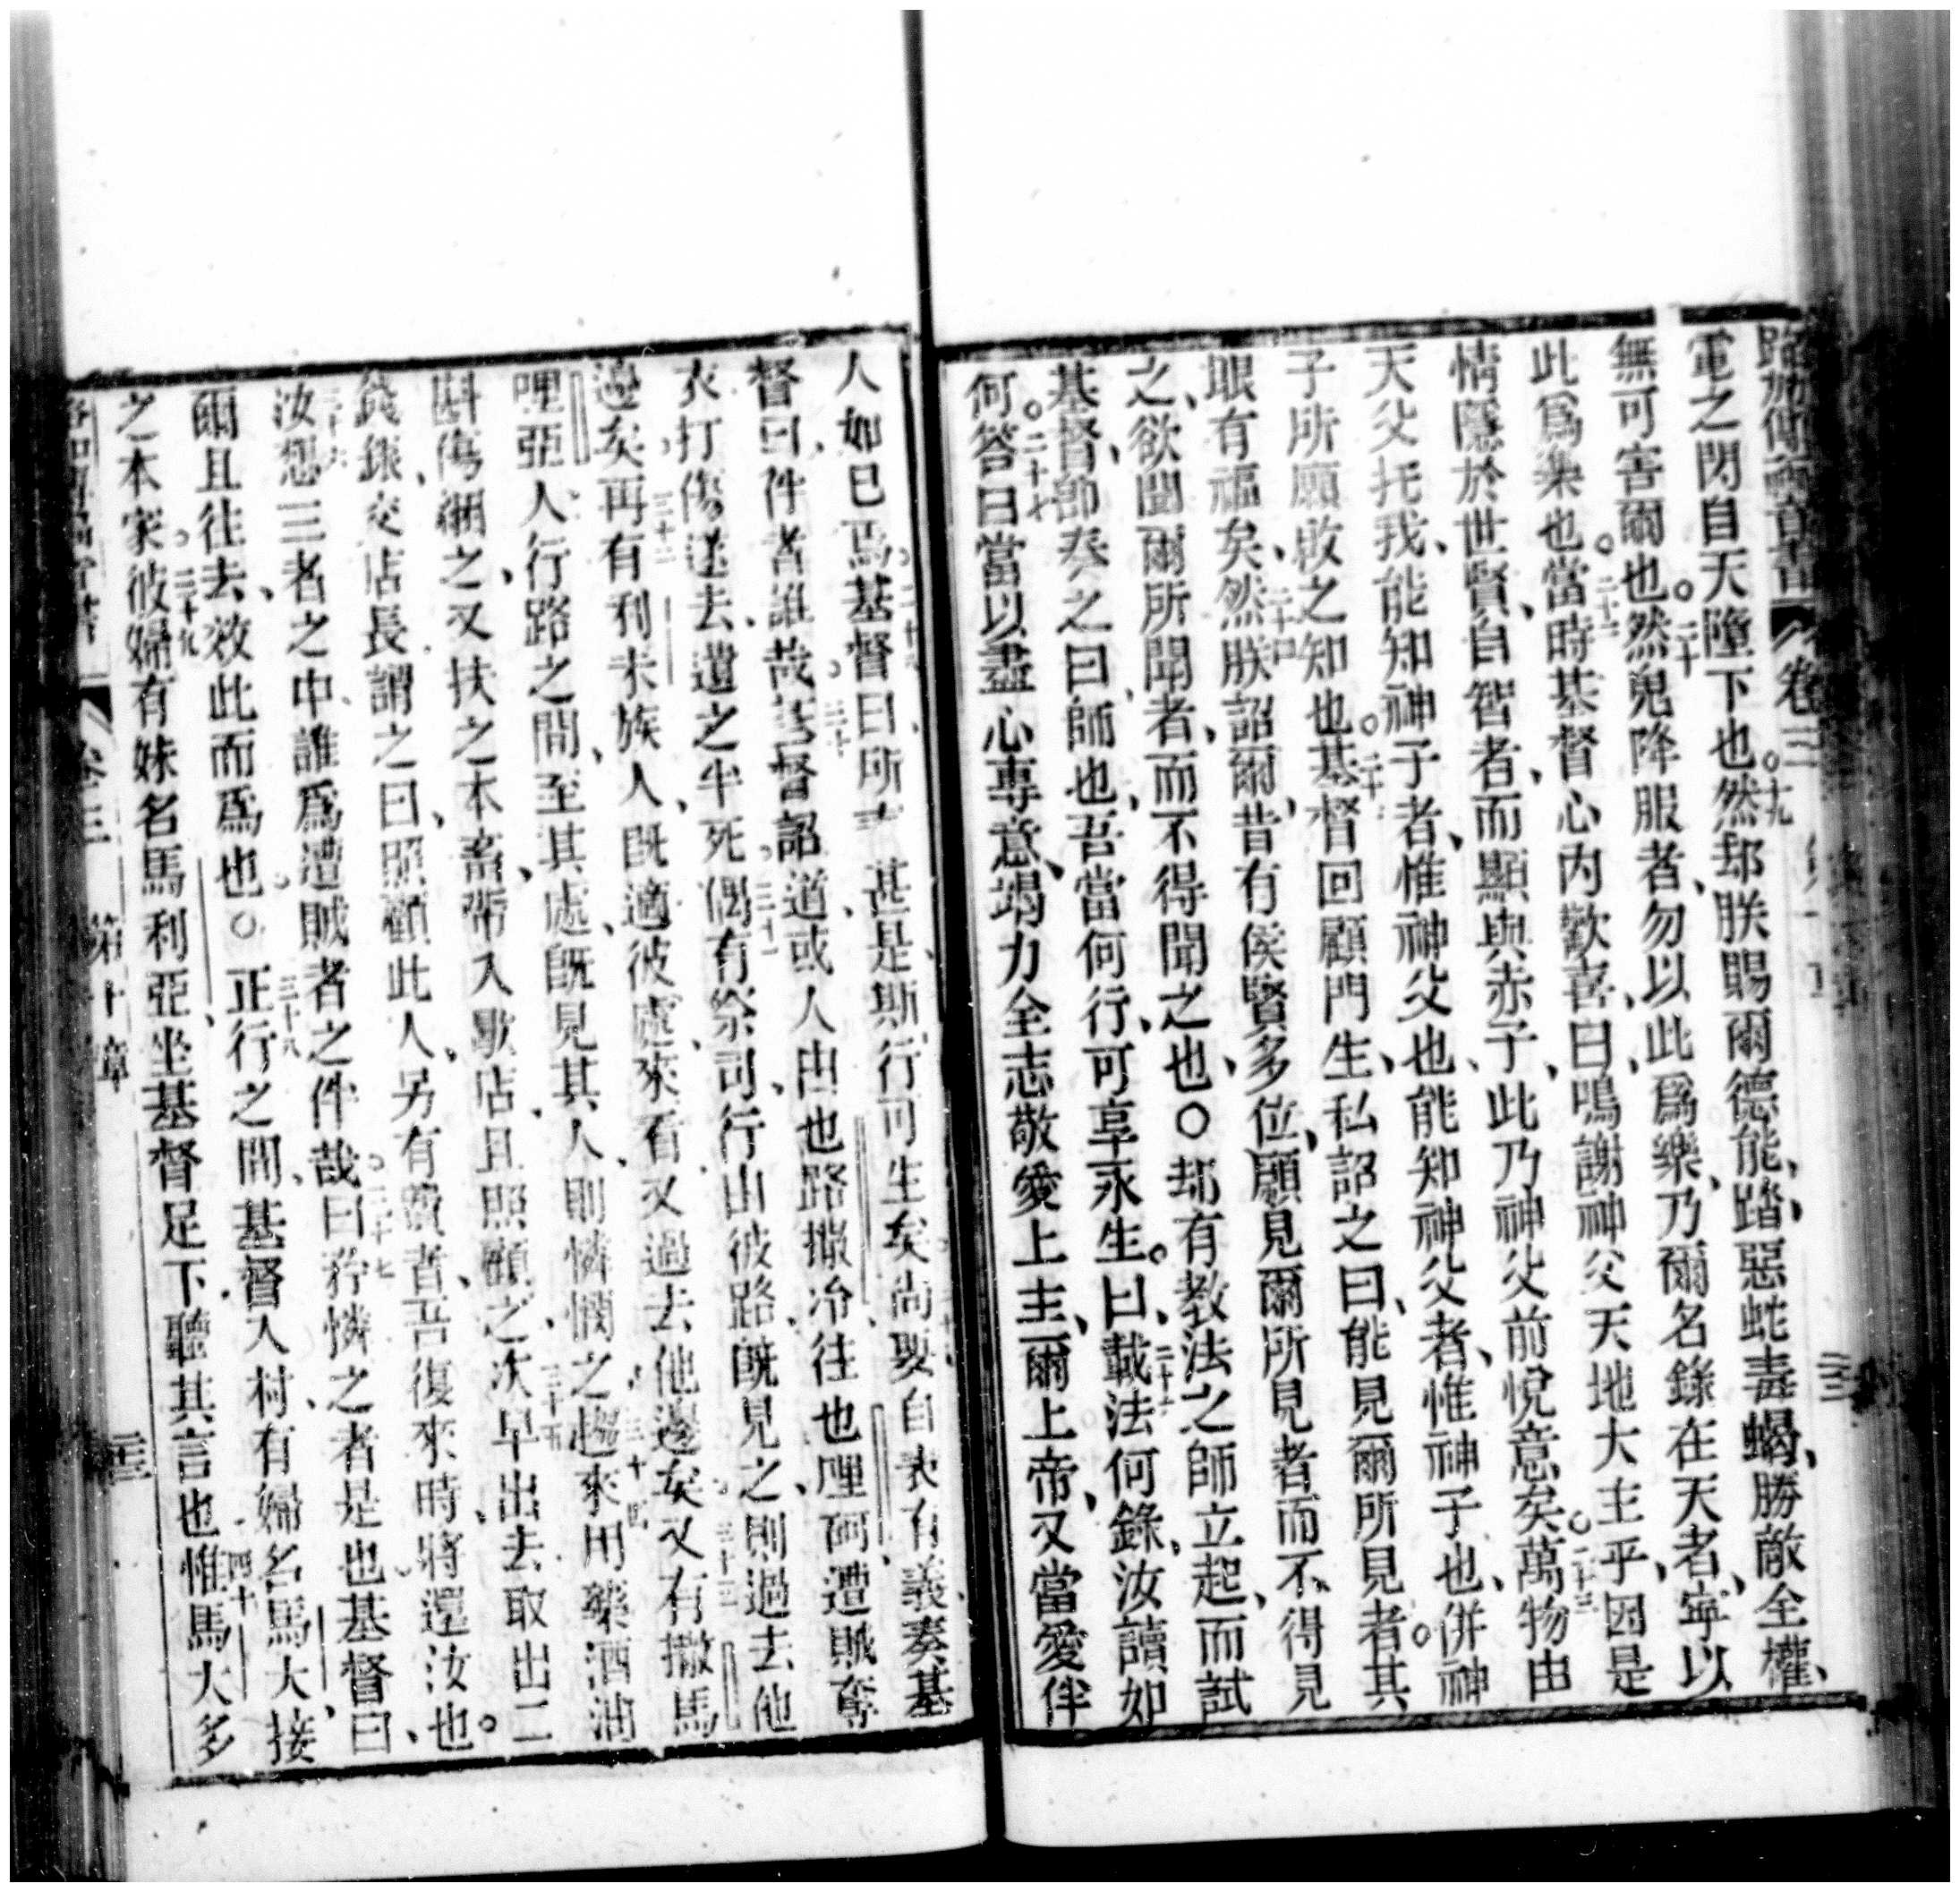 卷三
電之閃自天墮下也。十九然却朕賜爾德能、踏惡蛇毒蝎、勝敵全權、
無可害爾也。二十然鬼降服者、勿以此爲樂、乃爾名錄在天者、寧以
此爲樂也。二十一當時基督心內歡喜、曰、鳴謝神父天地大主乎、因是
情隱於世賢、自智者、而顯與赤子、此乃神父前悅意矣。二十二萬物由
天父托我、能知神子者、惟神父也、能知神父者、惟神子也、併神
子所願啟之知也。二十三基督回顧門生、私詔之曰、能見爾所見者。其
眼有福矣、二十四然朕詔爾、昔有侯賢多位、願見爾所見者而不得見
之、欲聞爾所聞者、而不得聞之也、○却有教法之師立起、而試
基督、卽奏之曰、師也、吾當何行、可享永生。曰、二十六載法何錄、汝讀如
何。二十七答曰當以盡心專意、竭力全志敬愛上主、爾上帝、又當愛伴
人如已焉。二十八基督曰、所言甚是、斯行可生矣、尚要自表有義、奏基
督曰、伴者誰哉。三十基督詔道、或人由也路撒冷往也哩哥、遭賊奪
衣打傷、送去、遺之半死。三十一偶有祭司、行由彼路、旣見之、則過去他
邊矣、三十二再有利未族人、旣適彼處、來看、又過去他邊矣。三十三又有撒馬
哩亞人行路之間、至其處、旣見其人、則憐憫之、三十四趨來用藥酒油
斟傷綑之、又扶之本畜、帶入歇店、且照顧之、三十五次早出去取出二
錢銀、交店長、謂之曰、照顧此人、另有費者、吾復來時、將還汝也。
三十六汝想三者之中、誰爲遭賊者之伴哉。三十七曰、矜憐之者是也。基督曰、
爾且往去、效此而爲也。○三十八正行之間、基督入村、有婦名馬大接
之本家。三十九彼婦有妹名馬利亞、坐基督足下、聽其言也、四十惟馬大多
卷三 第十章